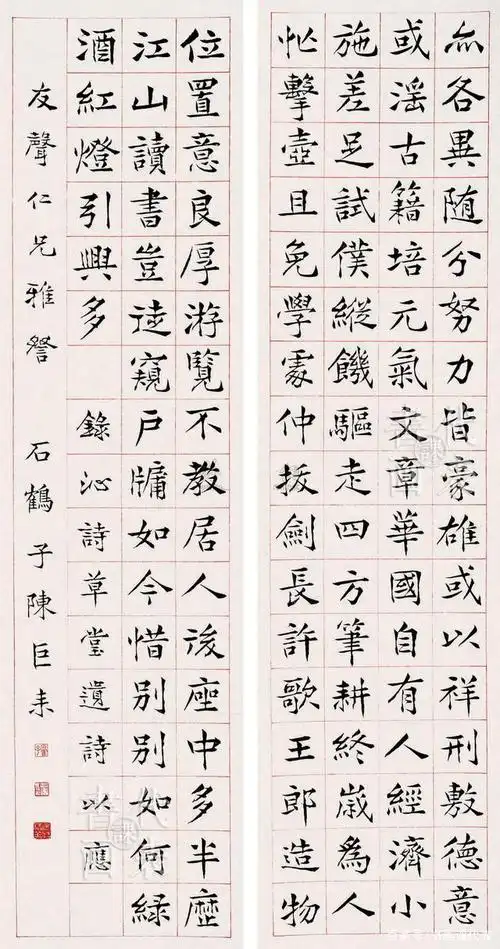 亦各異随分努力皆豪雄或以祥刑敷德意
或滛古籍培元氣文章華國自有人經濟小
施差足試僕縱饑驅走四方筆耕終嵗為人
忙擊壺且免學處仲拔劍長許歌王郎造物
位置意良厚游覽不教居人後座中多半歷
江山讀書豈逺窺戶牗如今惜别别如何緑
酒紅燈引興多 錄沁詩草堂遺詩以應
友聲仁兄雅詧 石鶴子陳巨耒